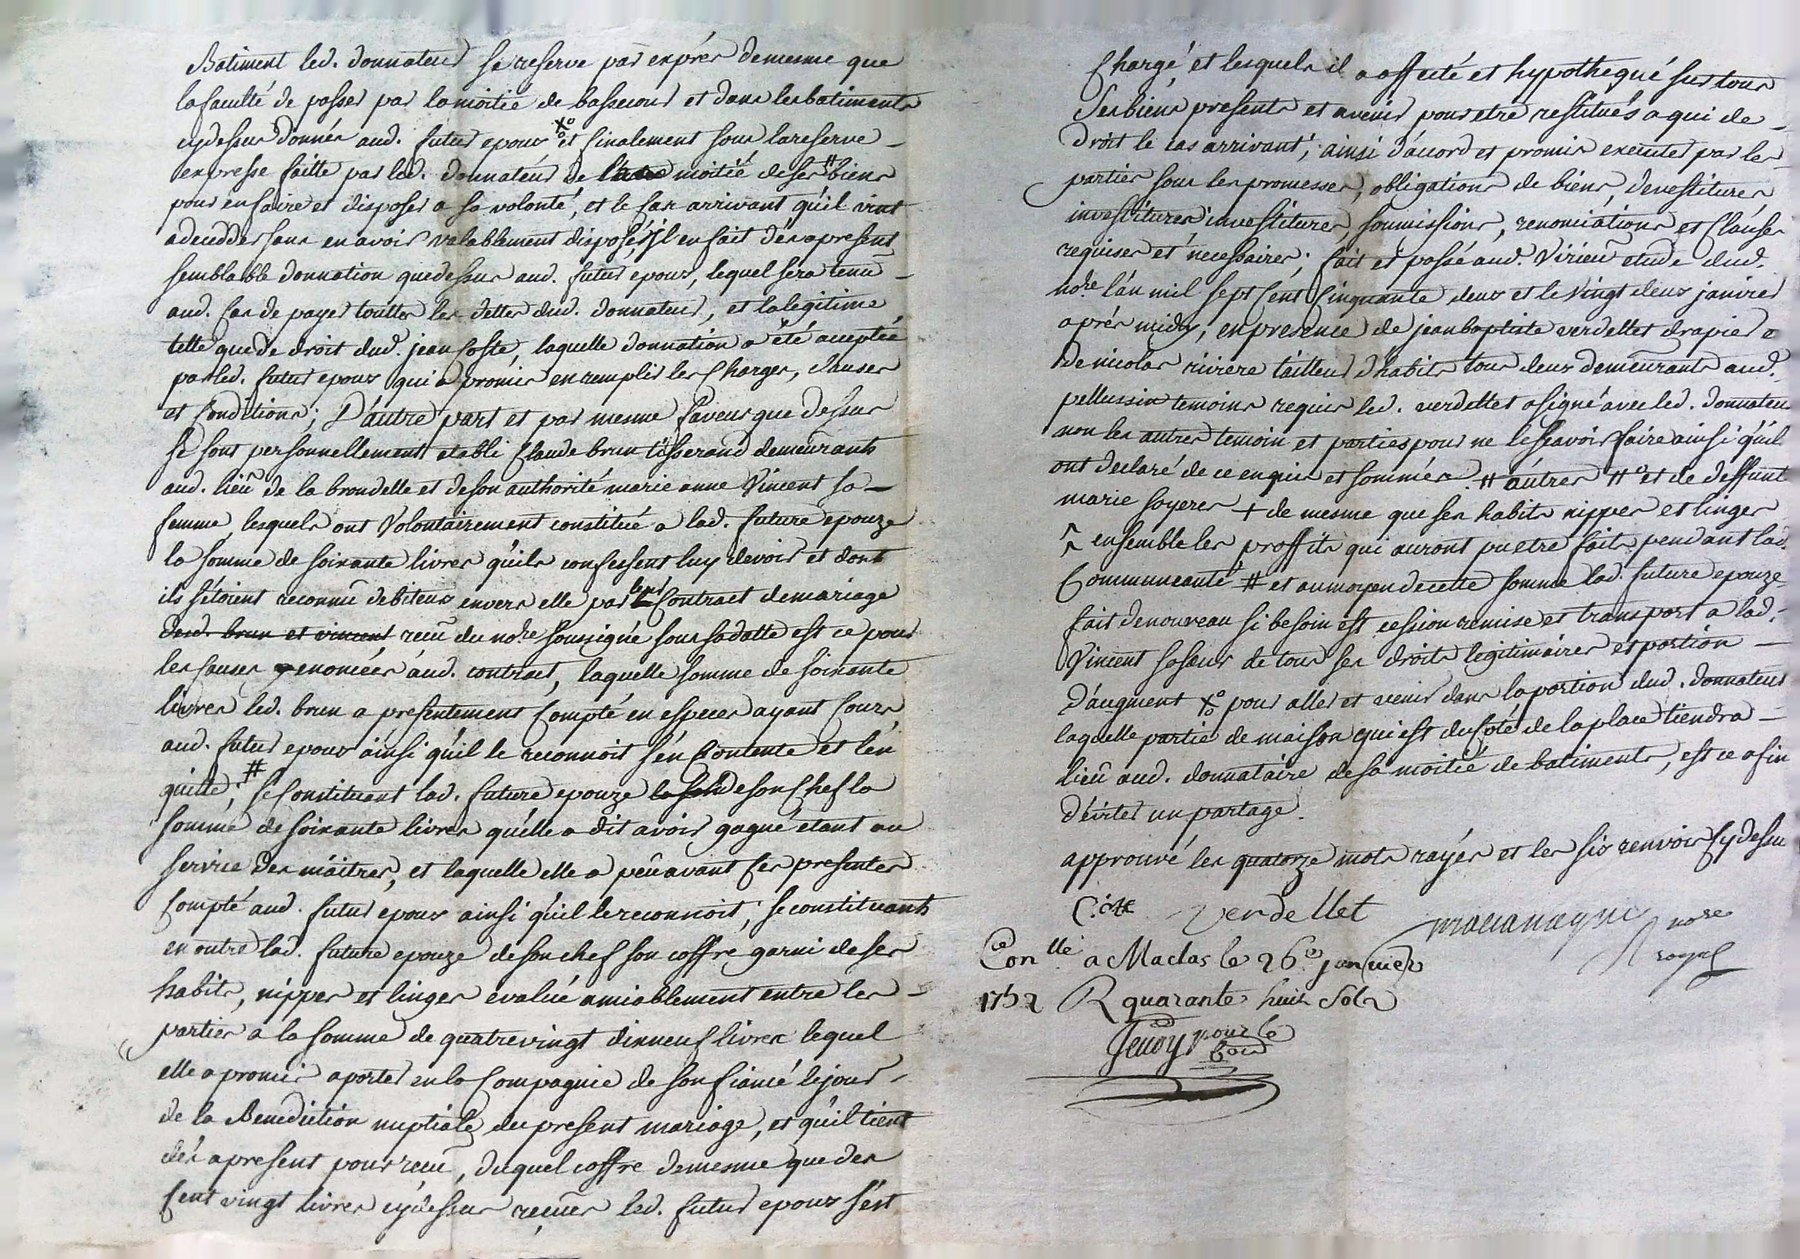 Batiment led. donnateur se reserve par exprés de mesme que
la faculté de passer par la moitié de bassecour et dans les batiments
cydessus donnés aud. futur epoux X° et finalement sous la reserve
expresse faitte par led. donnateur de moitié de ses # biens
pour en faire et disposer a sa volonté, et le cas arrivant qu'il vint
a decedder sans en avoir valablement disposé, Il en fait dès apresent
semblable donnation que dessus aud. futur epoux, lequel sera tenu
aud. cas de payer touttes les dettes dud. donnateur, et la legitime
telle que de droit dud. jean Coste, laquelle donnation a été acceptée
par led. futur epoux qui a promis en remplir les Charges, clauses
et Conditions; D'autre part et par mesme faveur que dessus
se sont personnellement etabli Claude brun tisserand demeurants
aud. lieu de la brondelle et de son authorité marie anne Vincent sa
femme, lesquels ont Volontairement constitué a lad. future epouze
la somme de soixante livres qu'ils confessent luy devoir et dont
ils s'étoient reconnu debiteurs envers elle par leur Contract de mariage
desd. brun et vincent receu du nore soussigné sous sa datte est ce pour
les causes enoncées aud. contract, laquelle somme de soixante
livres led. brun a presentement Compté en especes ayant Cours
aud. futur epoux ainsi qu'il le reconnoit s'en Contente et l'en
quitte, # se Constituant lad. future epouze de son Chef la
somme de soixante livres qu'elle a dit avoir gagné etant au
service des maitres, et laquelle elle a peu avant ces presentes
Compté aud. futur epoux ainsi qu'il le reconnoit; se constituants
en outre lad. future epouze de son chef son coffre garni de ses
habits, nippes et linges evalué amiablement entre les
parties a la somme de quatrevingt dixneuf livres lequel
elle a promis aporter en la Compagnie de son fiancé le jour
de la Benediction nuptiale du present mariage, et qu'il tient
dès apresent pour receu, duquel coffre de mesme que des
Cent vingt livres cydessus receues led. futur epoux s'est
Chargé, et lesquels il a affecté et hypothequé sur tous
ses biens presents et avenir pour etre restitués a qui de
droit le cas arrivant; ainsi d'accord et promis executer par les
parties sous les promesses, obligations de biens, devestitures
investitures soumissions, renonciations et Clauses
requises et necessaires; fait et passé aud. Virieu etude dud.
nore l'an mil sept Cent Cinquante deux et le Vingt deux janvier
aprés midy, en presence de jean baptiste verdellet drapier e
de nicolas riviere tailleur d'habits tous deux demeurants aud.
pellussin temoins requis led. verdellet a signé avec led. donnateur
non les autres temoin et parties pour ne le scavoir faire ainsi qu'il
ont declaré de ce enquis et sommés # autres #° et de deffunt
marie soyeres + de mesme que ses habits nippes et linges
ensemble les proffits qui auront pu etre faits pendant lad.
Communeauté # et au moyen de cette somme lad. future epouze
fait de nouveau si besoin est cession remise et transport a lad.
Vincent sa soeur de tous ses droits legitimaires et portion
d'augment X° pour aller et venir dans la portion dud. donnateur
laquelle partie de maison qui est du Coté de la place tiendra
lieu aud. donnataire de sa moitié de batiments, est ce afin
d'eviter un partage.
approuvé les quatorze mots rayés et les six renvois cydessus
Coste verdellet nore
royal
Conllé a Maclas le 26e janvier
1752 R quarante huit Sols
pour le